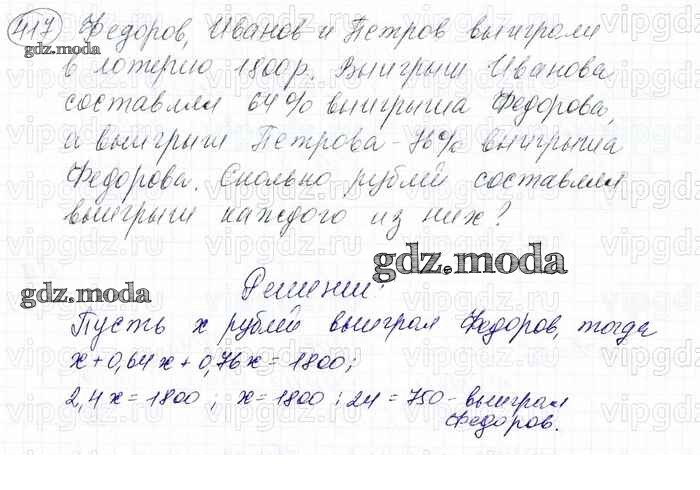 417 Федоров, Иванов и Петров выиграли
в лотерею 1800р. Выигрыш Иванова
составлял 64% выигрыша Федорова,
а выигрыш Петрова - 76% выигрыша
Федорова. Сколько рублей составлял
выигрыш каждого из них?
Решение:
Пусть x рублей выиграл Федоров, тогда
x+0,64x+0,76x=1800;
2,4x=1800; x=1800:24=750 - выиграл
Федоров.
gdz.moda
gdz.moda
gdz.moda
vipgdz.ru